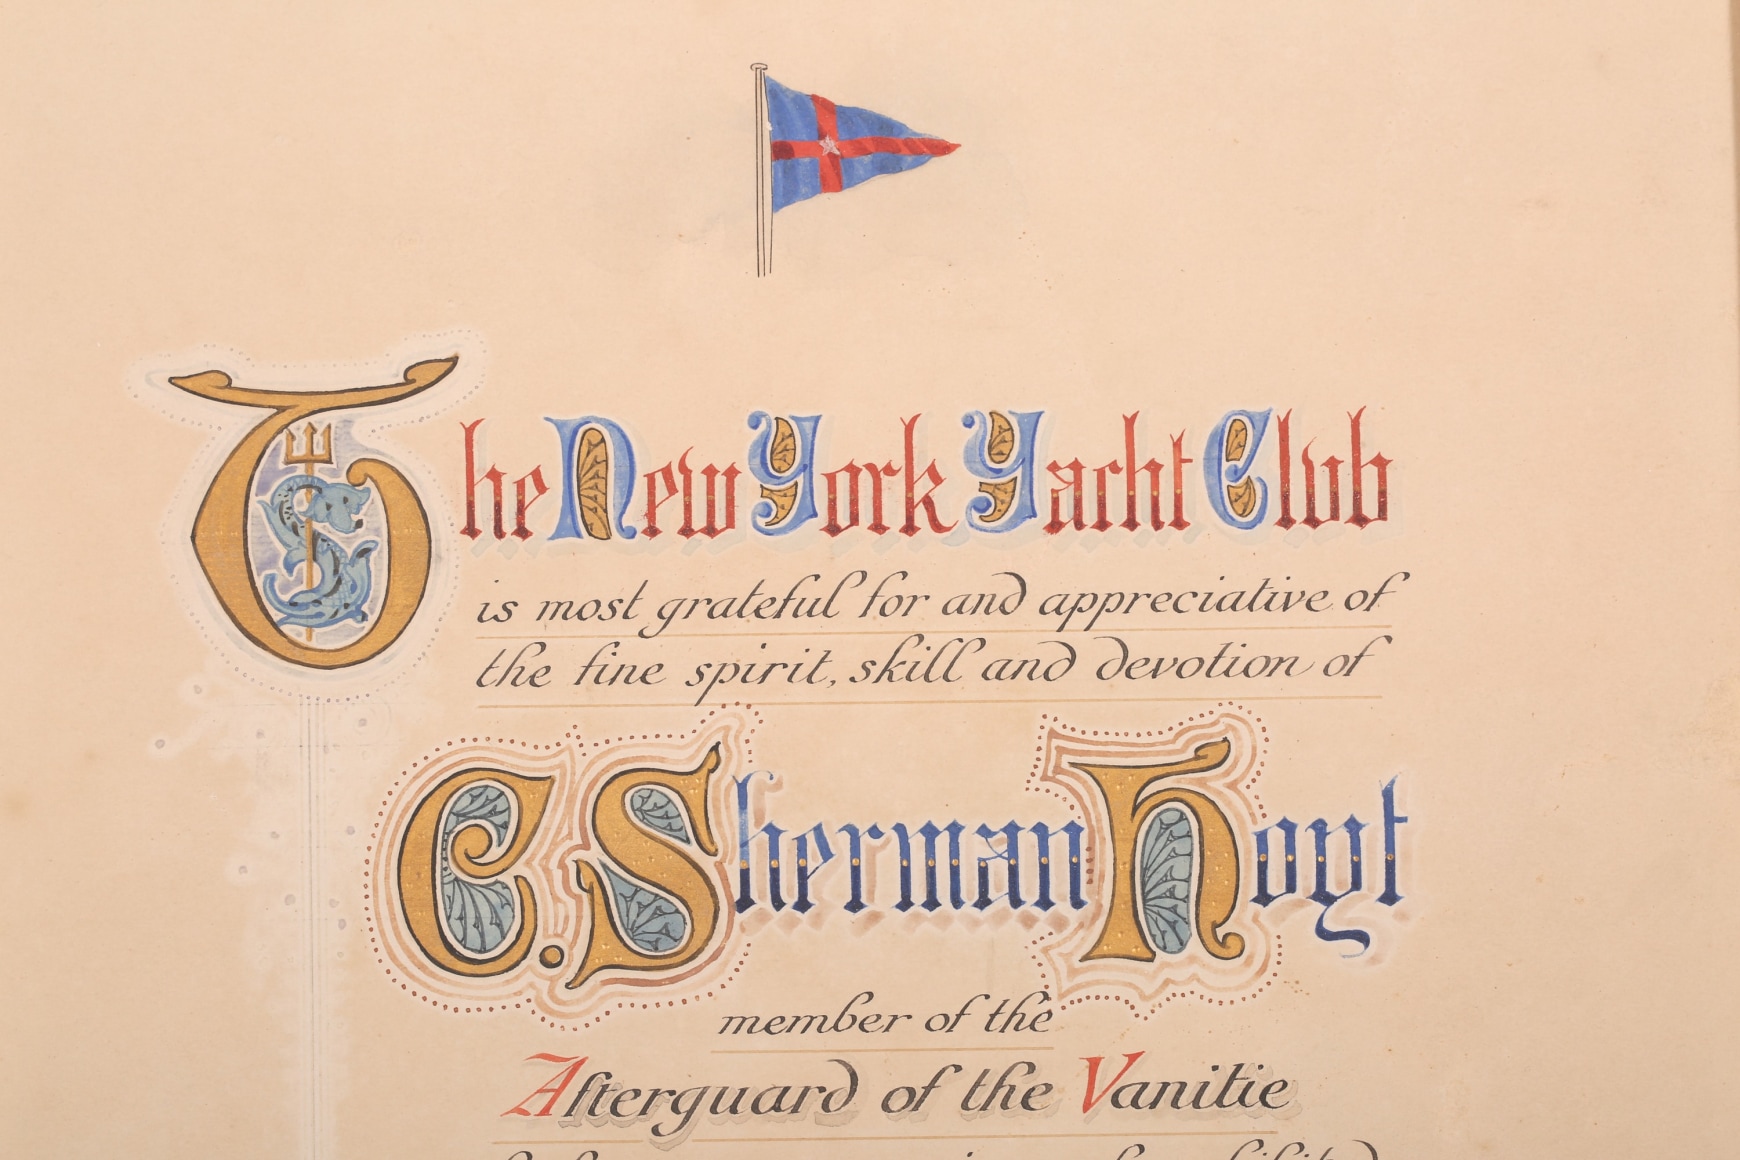 The New York Yacht Club
is most grateful for and appreciative of
the fine spirit, skill and devotion of
C. Sherman Hoyt
member of the
Afterguard of the Vanitie